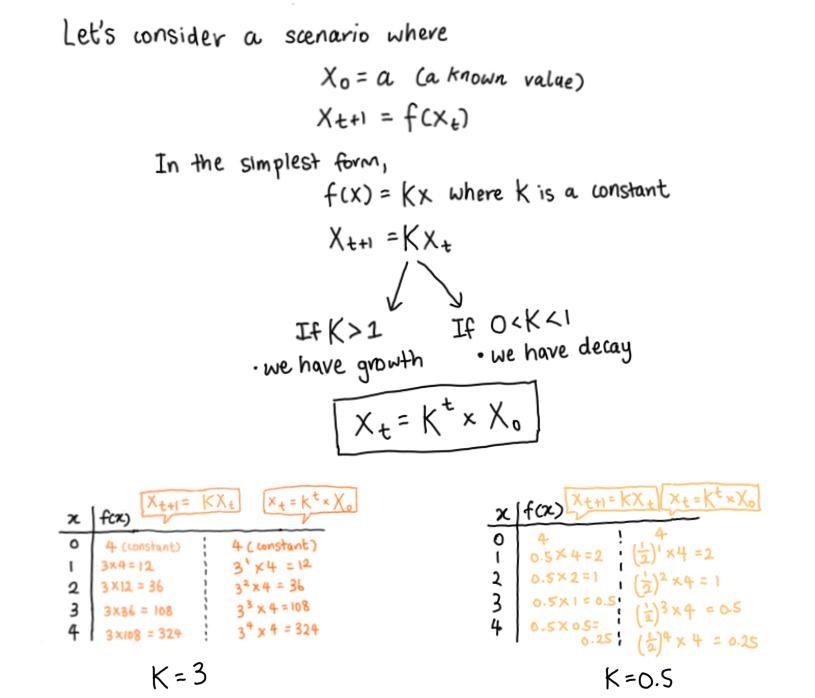 Let's consider a scenario where
X₀ = a (a known value)
Xt+1 = f(Xt)
In the simplest form,
f(x) = Kx where k is a constant
Xt+1 = KXt
If K>1
• we have growth
If 0<K<1
• we have decay
Xt = K^t × X₀
x f(x) Xt+1 = KXt xt = k^t × X₀
0 4 (constant) 4 (constant)
1 3×4 = 12 3^1 × 4 = 12
2 3×12 = 36 3^2 × 4 = 36
3 3×36 = 108 3^3 × 4 = 108
4 3×108 = 324 3^4 × 4 = 324
K = 3
x f(x) Xt+1 = KXt xt = K^t × X₀
0 4 4
1 0.5 × 4 = 2 (1/2)^1 × 4 = 2
2 0.5 × 2 = 1 (1/2)^2 × 4 = 1
3 0.5 × 1 = 0.5 (1/2)^3 × 4 = 0.5
4 0.5 × 0.5 = 0.25 (1/2)^4 × 4 = 0.25
K = 0.5